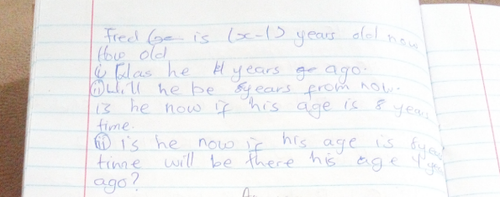 Fred is (x-1) years old now
How old
i, Was he 4 years ago.
ii) Will he be 8years from now.
is he now if his age is 8 years
time.
iii) is he now if his age is 8years
time will be there his age 4 years
ago?